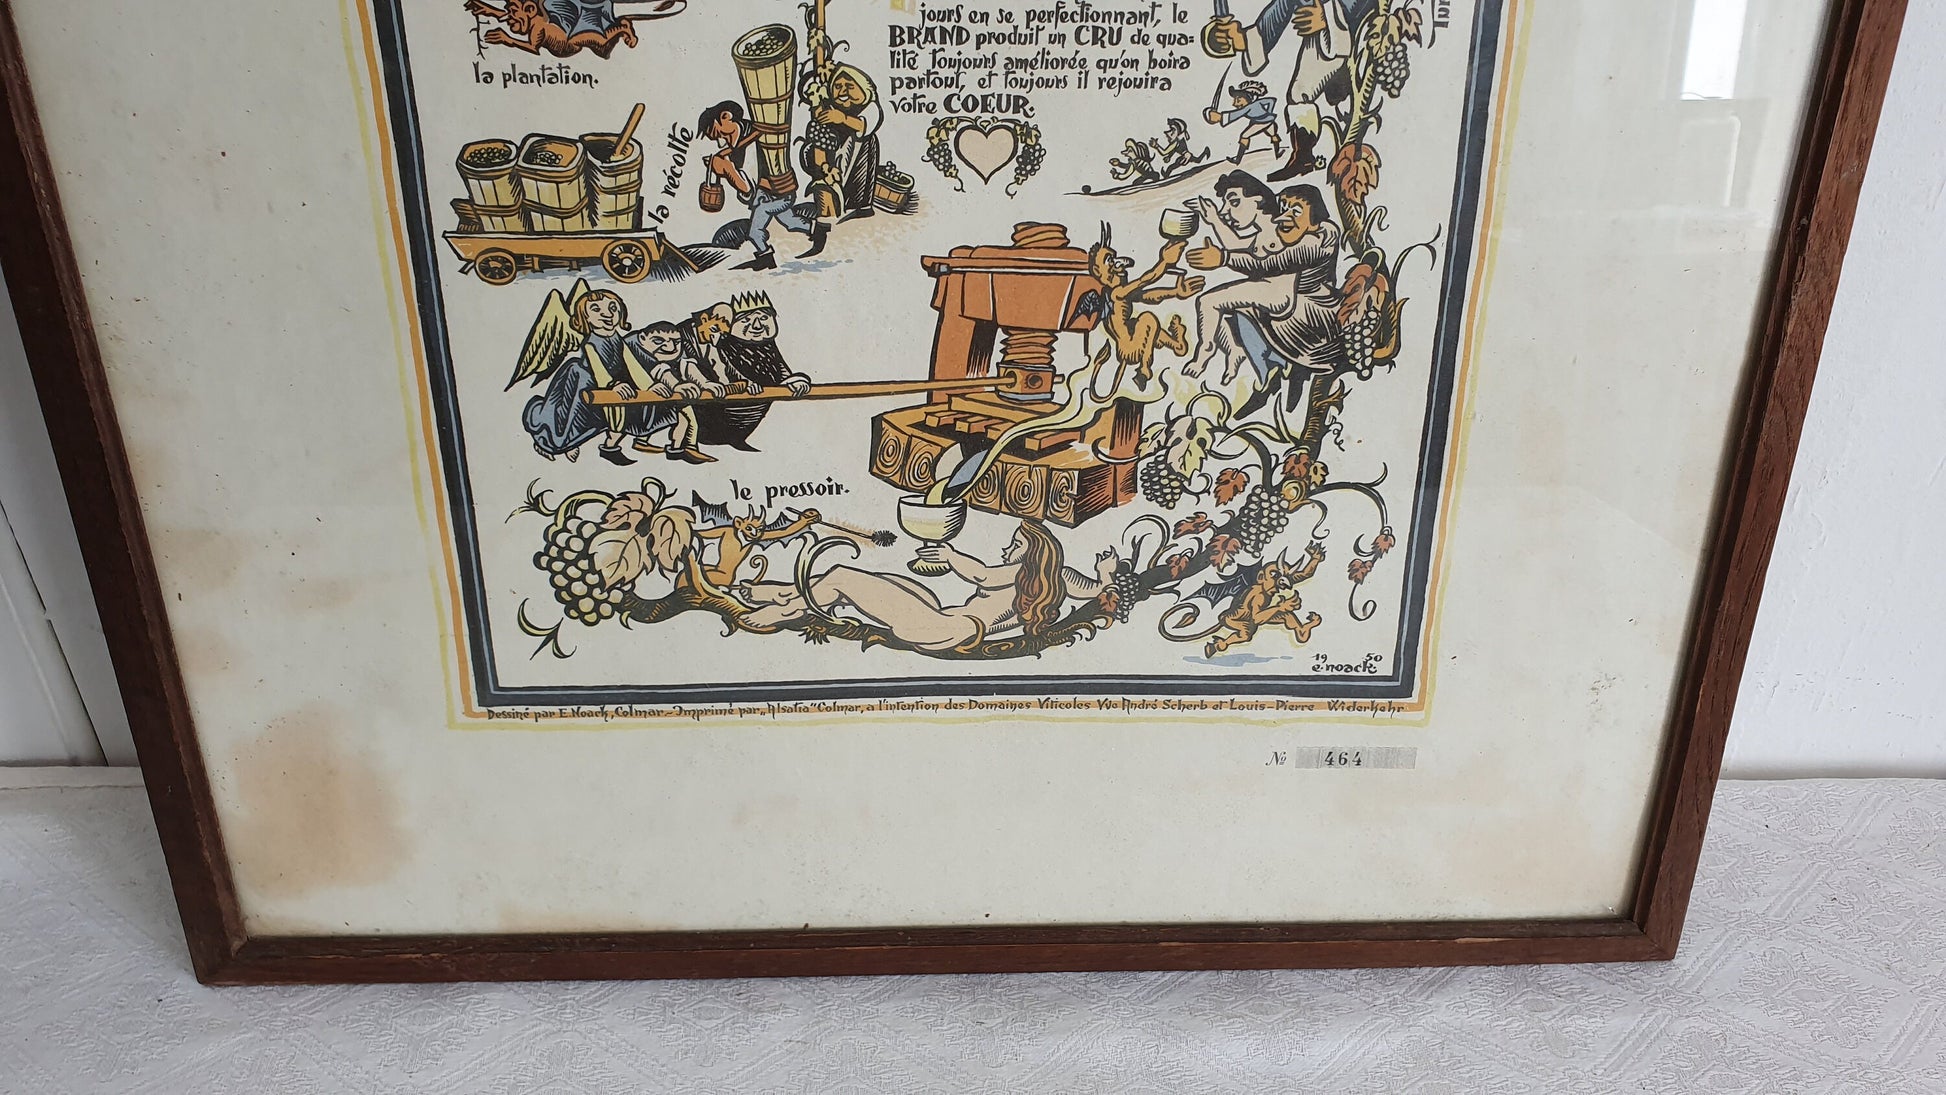 jours en se perfectionnant, le
BRAND produit un CRU de qua=
lité toujours améliorée qu'on boira
partout, et toujours il rejouira
votre COEUR.
la plantation.
la récolte
le pressoir.
19 50
e. noack
Dessiné par E. Noack, Colmar.- Imprimé par „Alsatia" Colmar, a l'intention des Domaines Viticoles Vve André Scherb et Louis-Pierre Widerkehr
№ 464